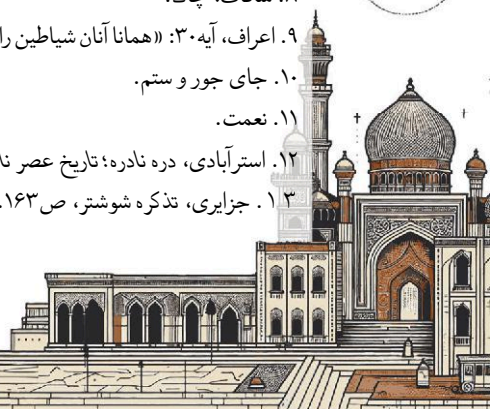 ۹. اعراف، آیه۳۰: «همانا آنان شیاطین را
۱۰. جای جور و ستم.
۱۱. نعمت.
۱۲. استرآبادی، دره نادره؛ تاریخ عصر نا
۱۳. جزایری، تذکره شوشتر، ص۱۶۳.